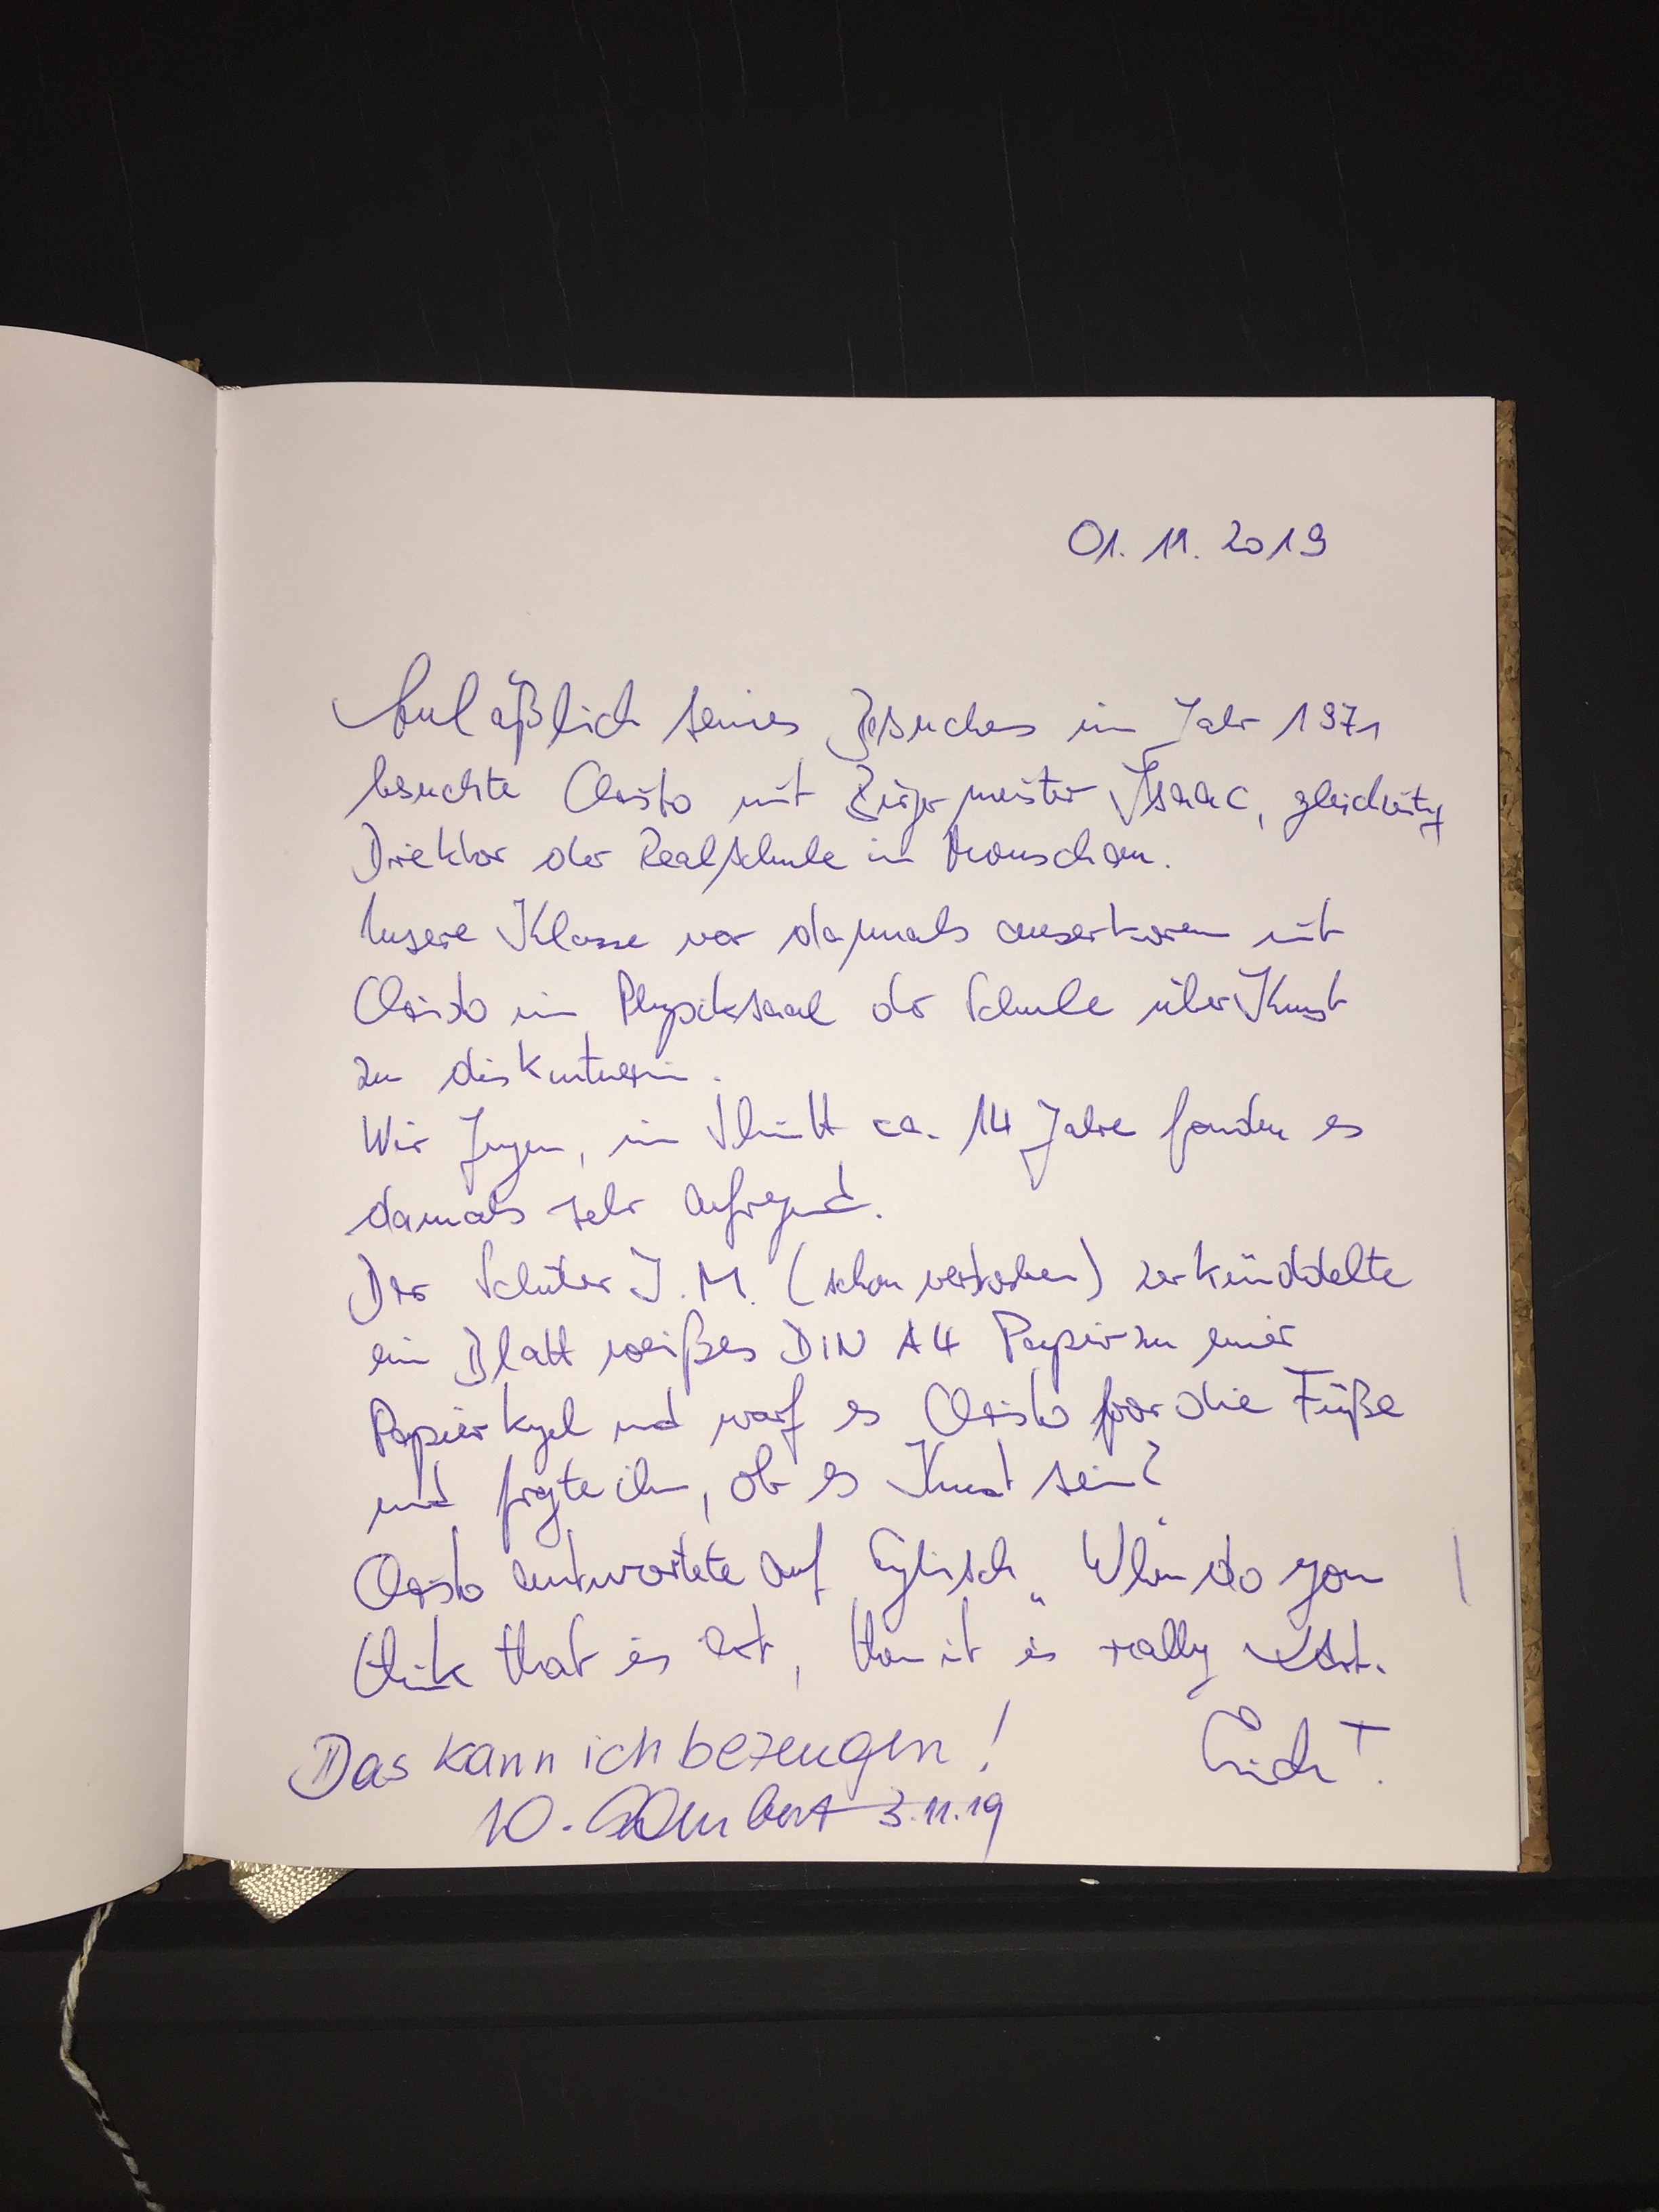 01.11.2019
Anläßlich seines Besuches im Jahr 1971
besuchte Christo mit Bürgermeister Isaac, gleichzeitig
Direktor der Realschule in Monschau.
Unsere Klasse war damals auserkoren mit
Christo im Physiksaal der Schule über Kunst
zu diskutieren.
Wir Jungen, im Schnitt ca. 14 Jahre fanden es
damals sehr aufregend.
Der Schüler J. M. (schon verstorben) zerknüddelte
ein Blatt weißes DIN A4 Papier zu einer
Papierkugel und warf es Christo vor die Füße
und fragte ihn, ob es Kunst sei?
Christo antwortete auf Englisch „When do you
think that is Art, then it is really Art.
Erich T.
Das kann ich bezeugen!
3.11.19